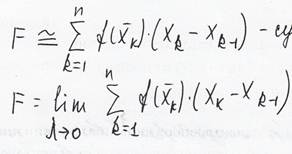 F ≅ ∑_{k=1}^{n} f(x̄_k)·(x_k - x_{k-1}) - су
F = lim_{λ→0} ∑_{k=1}^{n} f(x̄_k)·(x_k - x_{k-1})